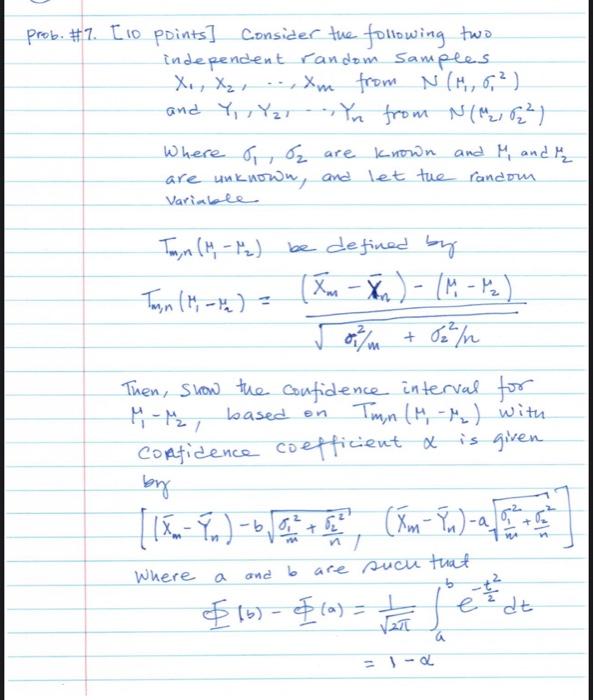 Prob. #7. [10 points] Consider the following two
independent random samples
X₁, X₂, ..., Xm from N(μ₁, σ₁²)
and Y₁, Y₂, ..., Yn from N(μ₂, σ₂²)
Where σ₁, σ₂ are known and μ₁ and μ₂
are unknown, and let the random
Variable
Tm,n(μ₁ - μ₂) be defined by
Tm,n(μ₁ - μ₂) = ((X̄m - Ȳn) - (μ₁ - μ₂)) / √(σ₁²/m + σ₂²/n)
Then, show the confidence interval for
μ₁ - μ₂, based on Tm,n(μ₁ - μ₂) with
confidence coefficient α is given
by
[(X̄m - Ȳn) - b√(σ₁²/m + σ₂²/n), (X̄m - Ȳn) - a√(σ₁²/m + σ₂²/n)]
Where a and b are such that
Φ(b) - Φ(a) = 1/√2π ∫ₐᵇ e^(-t²/2) dt
= 1 - α